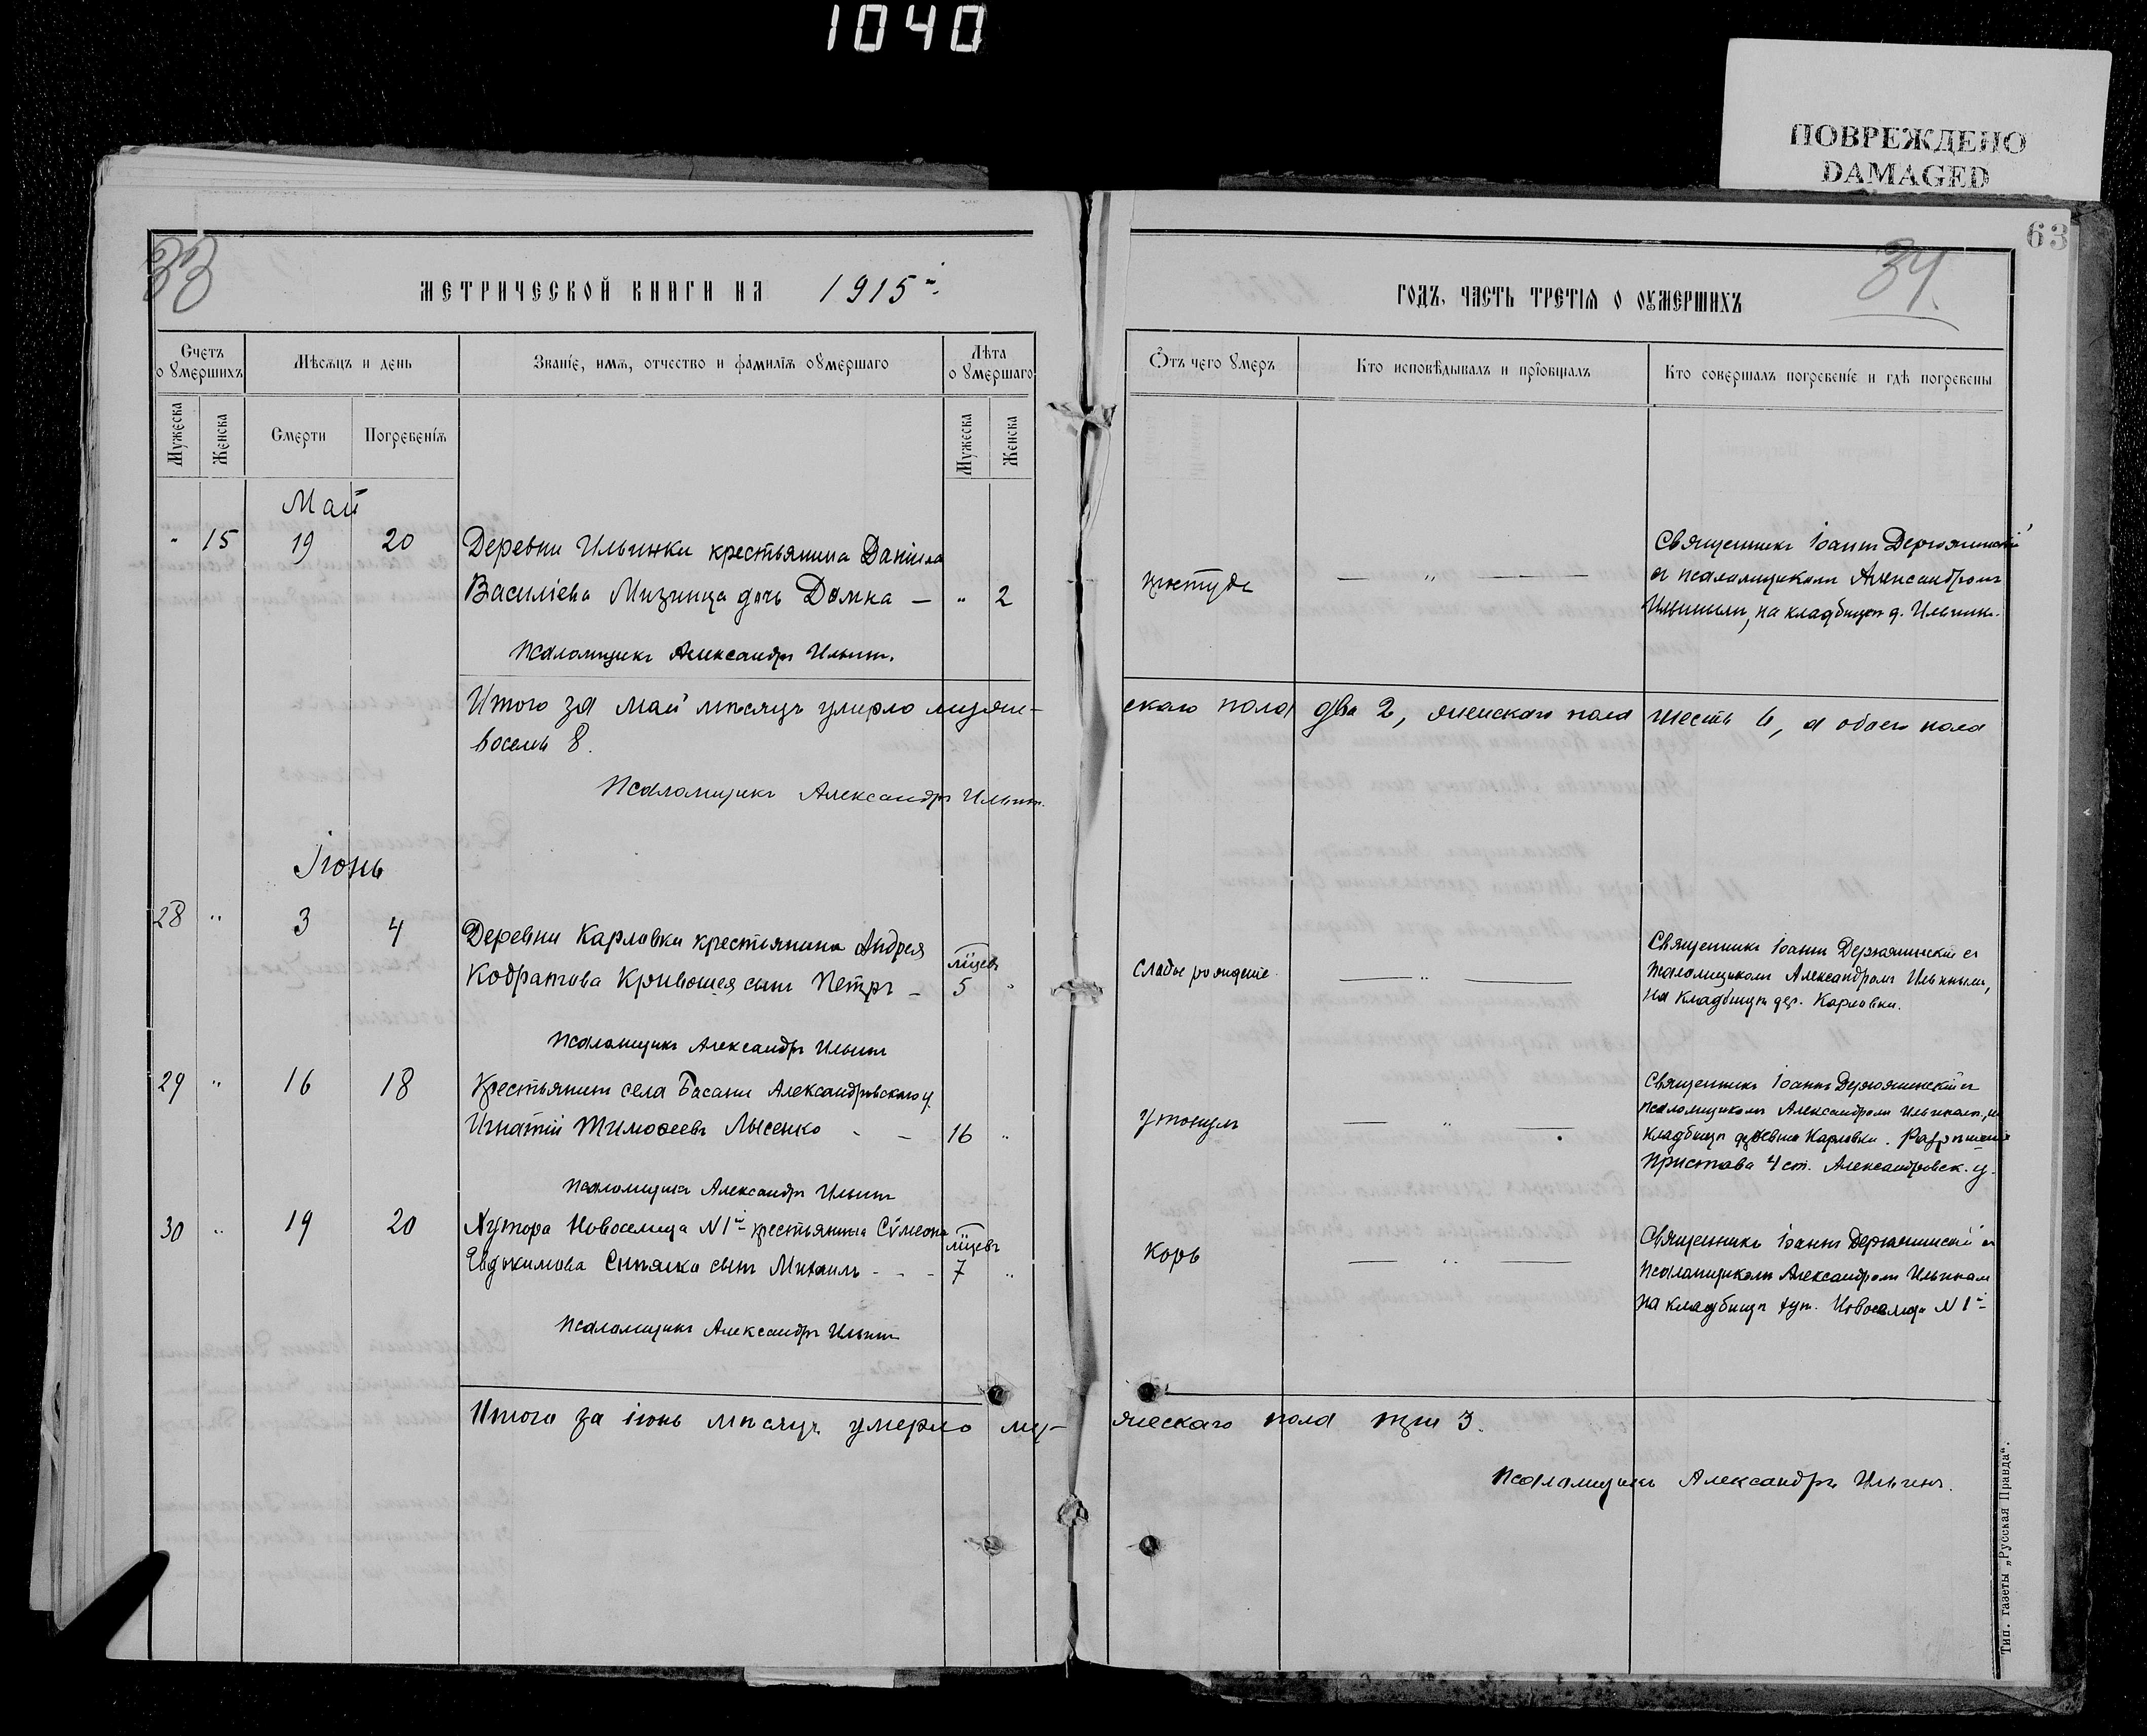 1040
ПОВРЕЖДЕНО
DAMAGED
63
33
34.
МЕТРИЧЕСКОЙ КНИГИ НА 1915 й
ГОДЪ, ЧАСТЬ ТРЕТІѦ О ОУМЕРШИХЪ
Счетъ о Умершихъ
Мѣсѧцъ и день
Званіе, имѧ, отчество и фамиліѧ оУмершаго
Лѣта оУмершаго
Отъ чего Умеръ
Кто исповѣдывалъ и пріобщалъ
Кто совершалъ погребеніе и гдѣ погребены
Мужеска
Женска
Смерти
Погребеніѧ
Мужеска
Женска
Май
" 15 19 20 Деревни Ильинки крестьянина Даніила
Василіева Мизинца дочь Домна — " 2
Псаломщикъ Александръ Ильинъ.
— " —
Священникъ Іоаннъ Держянинскій
съ псаломщикомъ Александромъ
Ильинымъ, на кладбищѣ д. Ильинк.
Итого за май мѣсяцъ умерло муже-
скаго пола два 2, женскаго пола шесть 6, а обоего пола
восемь 8.
Псаломщикъ Александръ Ильинъ.
Іюнь
28 " 3 4 Деревни Карловки крестьянина Андрея
Кодратова Кривошея сынъ Петръ — мцевъ 5 "
Псаломщикъ Александръ Ильинъ
Слабое рожденіе.
— " —
Священникъ Іоаннъ Держянинскій съ
псаломщикомъ Александромъ Ильинымъ,
на кладбищѣ дер. Карловки.
29 " 16 18 Крестьянинъ села Басани Александровскаго у.
Игнатій Тимоѳеевъ Лысенко - - 16 "
Псаломщикъ Александръ Ильинъ
Утонулъ
— " —
Священникъ Іоаннъ Держянинскій съ
псаломщикомъ Александромъ Ильинымъ, на
кладбищѣ деревни Карловки. Разрѣшеніе
Пристава 4 ст. Александровск. у.
30 " 19 20 Хутора Новоселица N 1й крестьянина Сѵмеона
Евдокимова Синялка сынъ Михаилъ - - - мцевъ 7 "
Псаломщикъ Александръ Ильинъ
Корь
— " —
Священникъ Іоаннъ Держянинскій съ
псаломщикомъ Александромъ Ильинымъ
на кладбищѣ хут. Новоселица N 1й
Итого за іюнь мѣсяцъ умерло му-
жескаго пола три 3.
Псаломщикъ Александръ Ильинъ.
Тип. газеты „Русская Правда“.